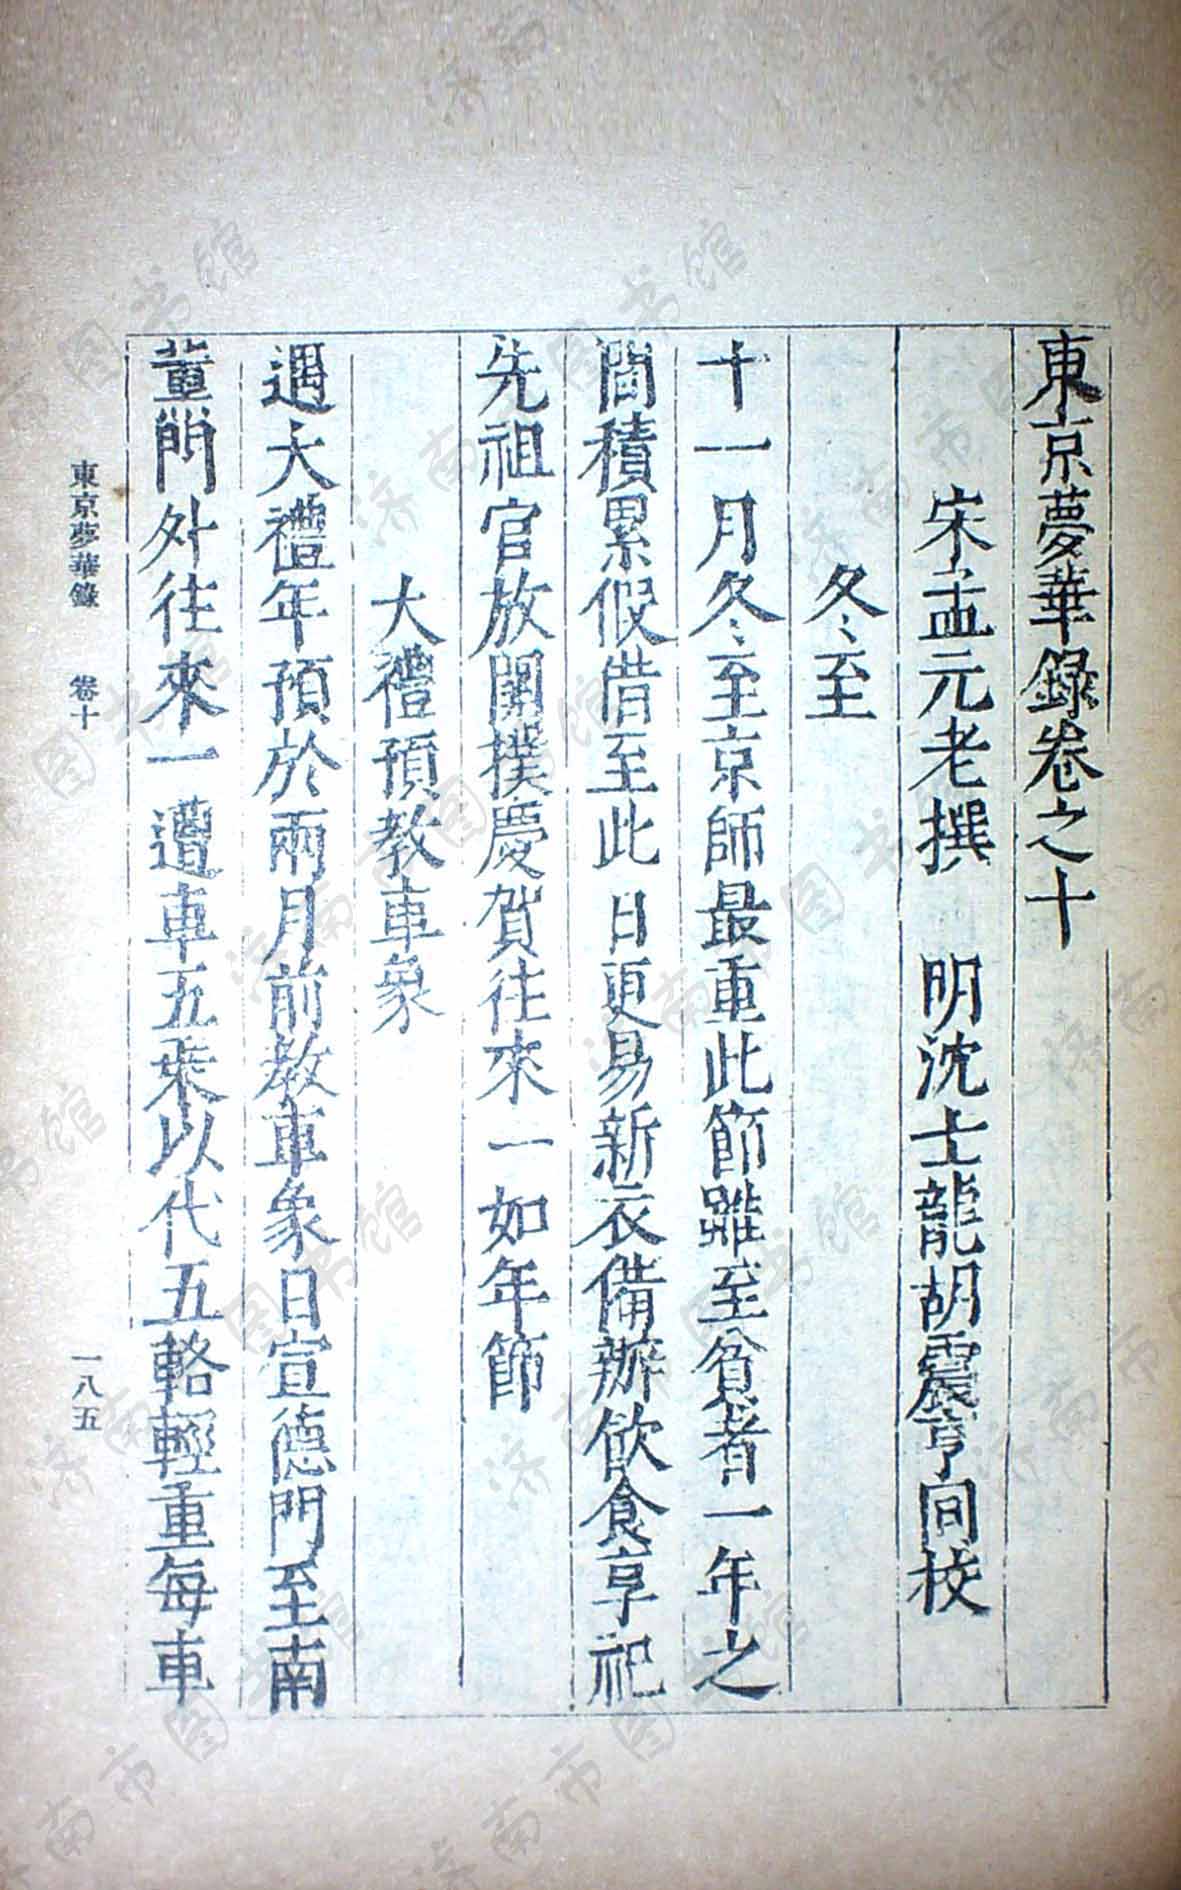 東京夢華錄卷之十
宋孟元老撰　明沈士龍胡震亨同校
冬至
十一月冬至京師最重此節雖至貧者一年之
間積累假借至此日更易新衣備辦飲食享祀
先祖官放關撲慶賀往來一如年節
大禮預教車象
遇大禮年預於兩月前教車象日宣德門至南
薰門外往來一遭車五乘以代五輅輕重每車
東京夢華錄　卷十　一八五
济南市图书馆